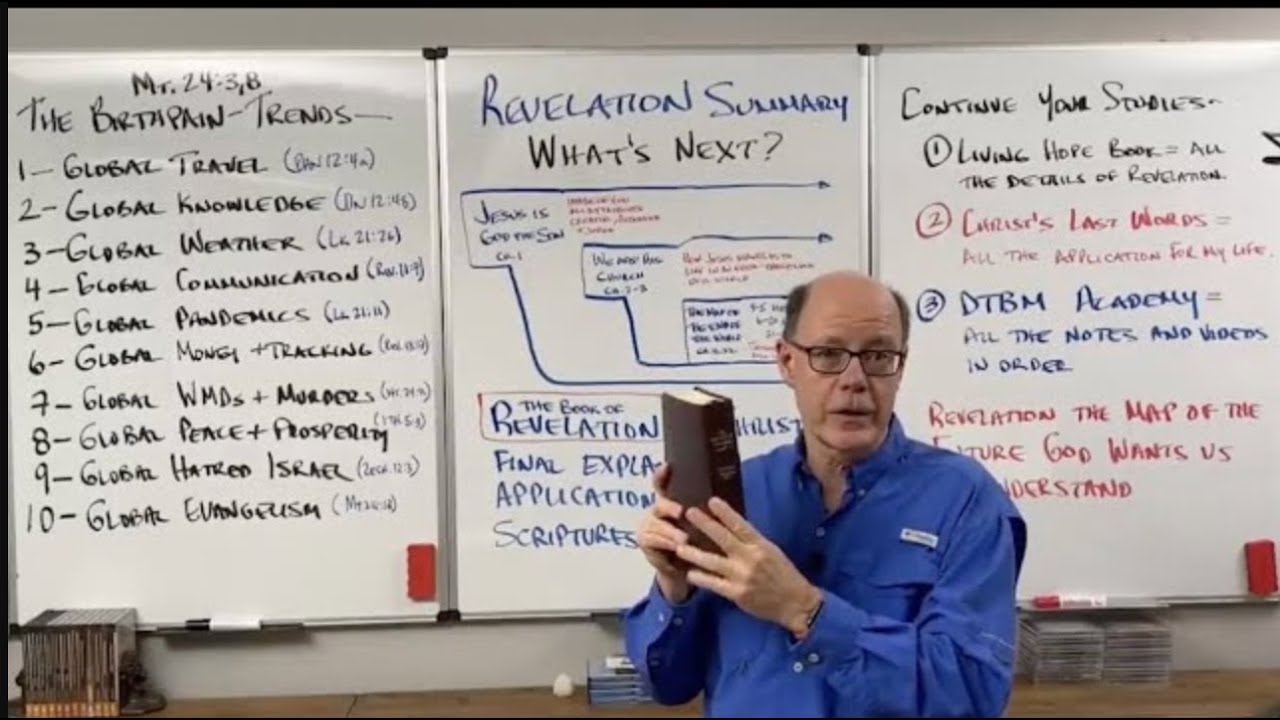 MT. 24:3,8
THE BIRTHPAIN-TRENDS—
1— GLOBAL TRAVEL (DAN 12:4a)
2- GLOBAL KNOWLEDGE (DN 12:4b)
3-GLOBAL WEATHER (LK. 21:26)
4- GLOBAL COMMUNICATION (REV. 11:9)
5- GLOBAL PANDEMICS (LK. 21:11)
6- GLOBAL MONEY +TRACKING
7- GLOBAL WMDS + MURDERS
8- GLOBAL PEACE + PROSPERITY
9- GLOBAL HATRED ISRAEL (ZECH. 12:3)
10- GLOBAL EVANGELISM
REVELATION SUMMARY
WHAT'S NEXT?
JESUS IS
GOD THE SON
CH.1
WE ARE HIS
CHURCH
CH. 2-3
THE MAP OF
THE END OF
THE WORLD
THE BOOK OF
REVELATION
FINAL
APPLICATION
SCRIPTURES
CONTINUE YOUR STUDIES-
① LIVING HOPE BOOK = ALL
THE DETAILS OF REVELATION.
② CHRIST'S LAST WORDS =
ALL THE APPLICATION FOR MY LIFE.
③ DTBM ACADEMY =
ALL THE NOTES AND VIDEOS
IN ORDER
REVELATION THE MAP OF THE
GOD WANTS US
Columbia